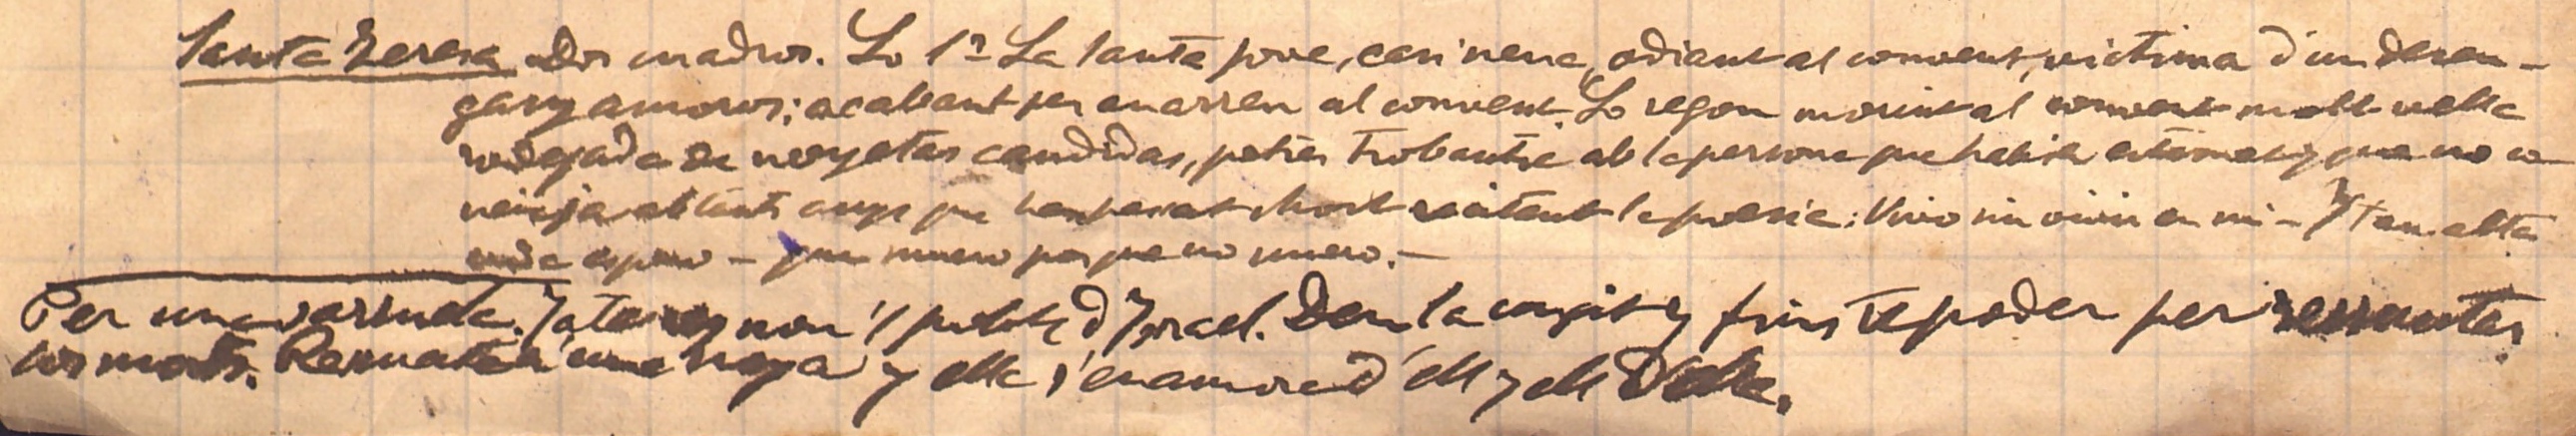 Santa Teresa Dos quadros. Lo 1r La Santa jove, casi nena, odiant al convent, victima d'un desen-
gany amoros; acabant per anarsen al convent. Lo segon morint al convent molt vella
rodejada de noyetas candidas, potser trobantse ab la persona que habia estimat y que no co
neixja ab tants anys que han passat recitant la poesia: Vivo sin vivir en mi - Y tan alta
vida espero - que muero porque no muero. -
Per una sarsuela. Jate nou'l poble d'Israel. Deu la inspirat y fins te poder per ressucitar
los morts. Ressucita una noya y ella s'enamora d'ell y ell d'ella.